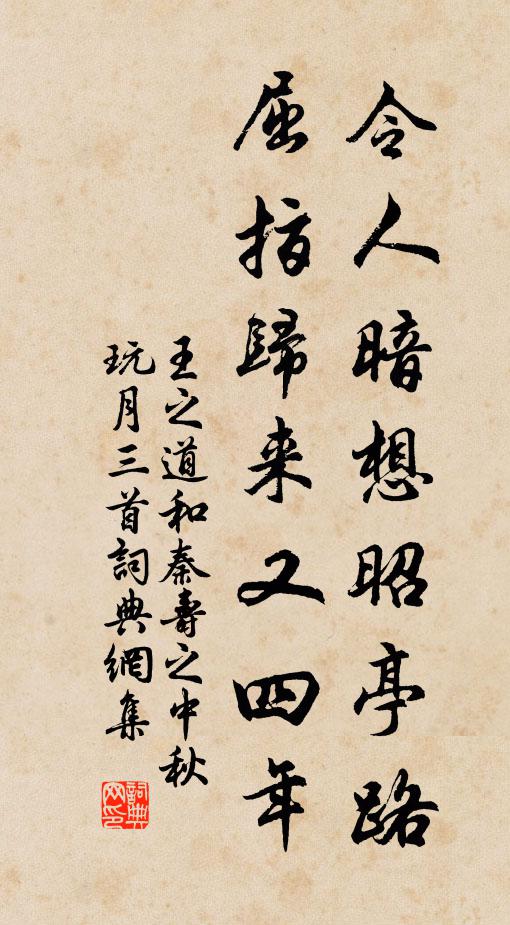 令人暗想昭亭路
屈指歸来又四年
王之道和秦壽之中秋
玩月三首詞典網集
詞典
网印